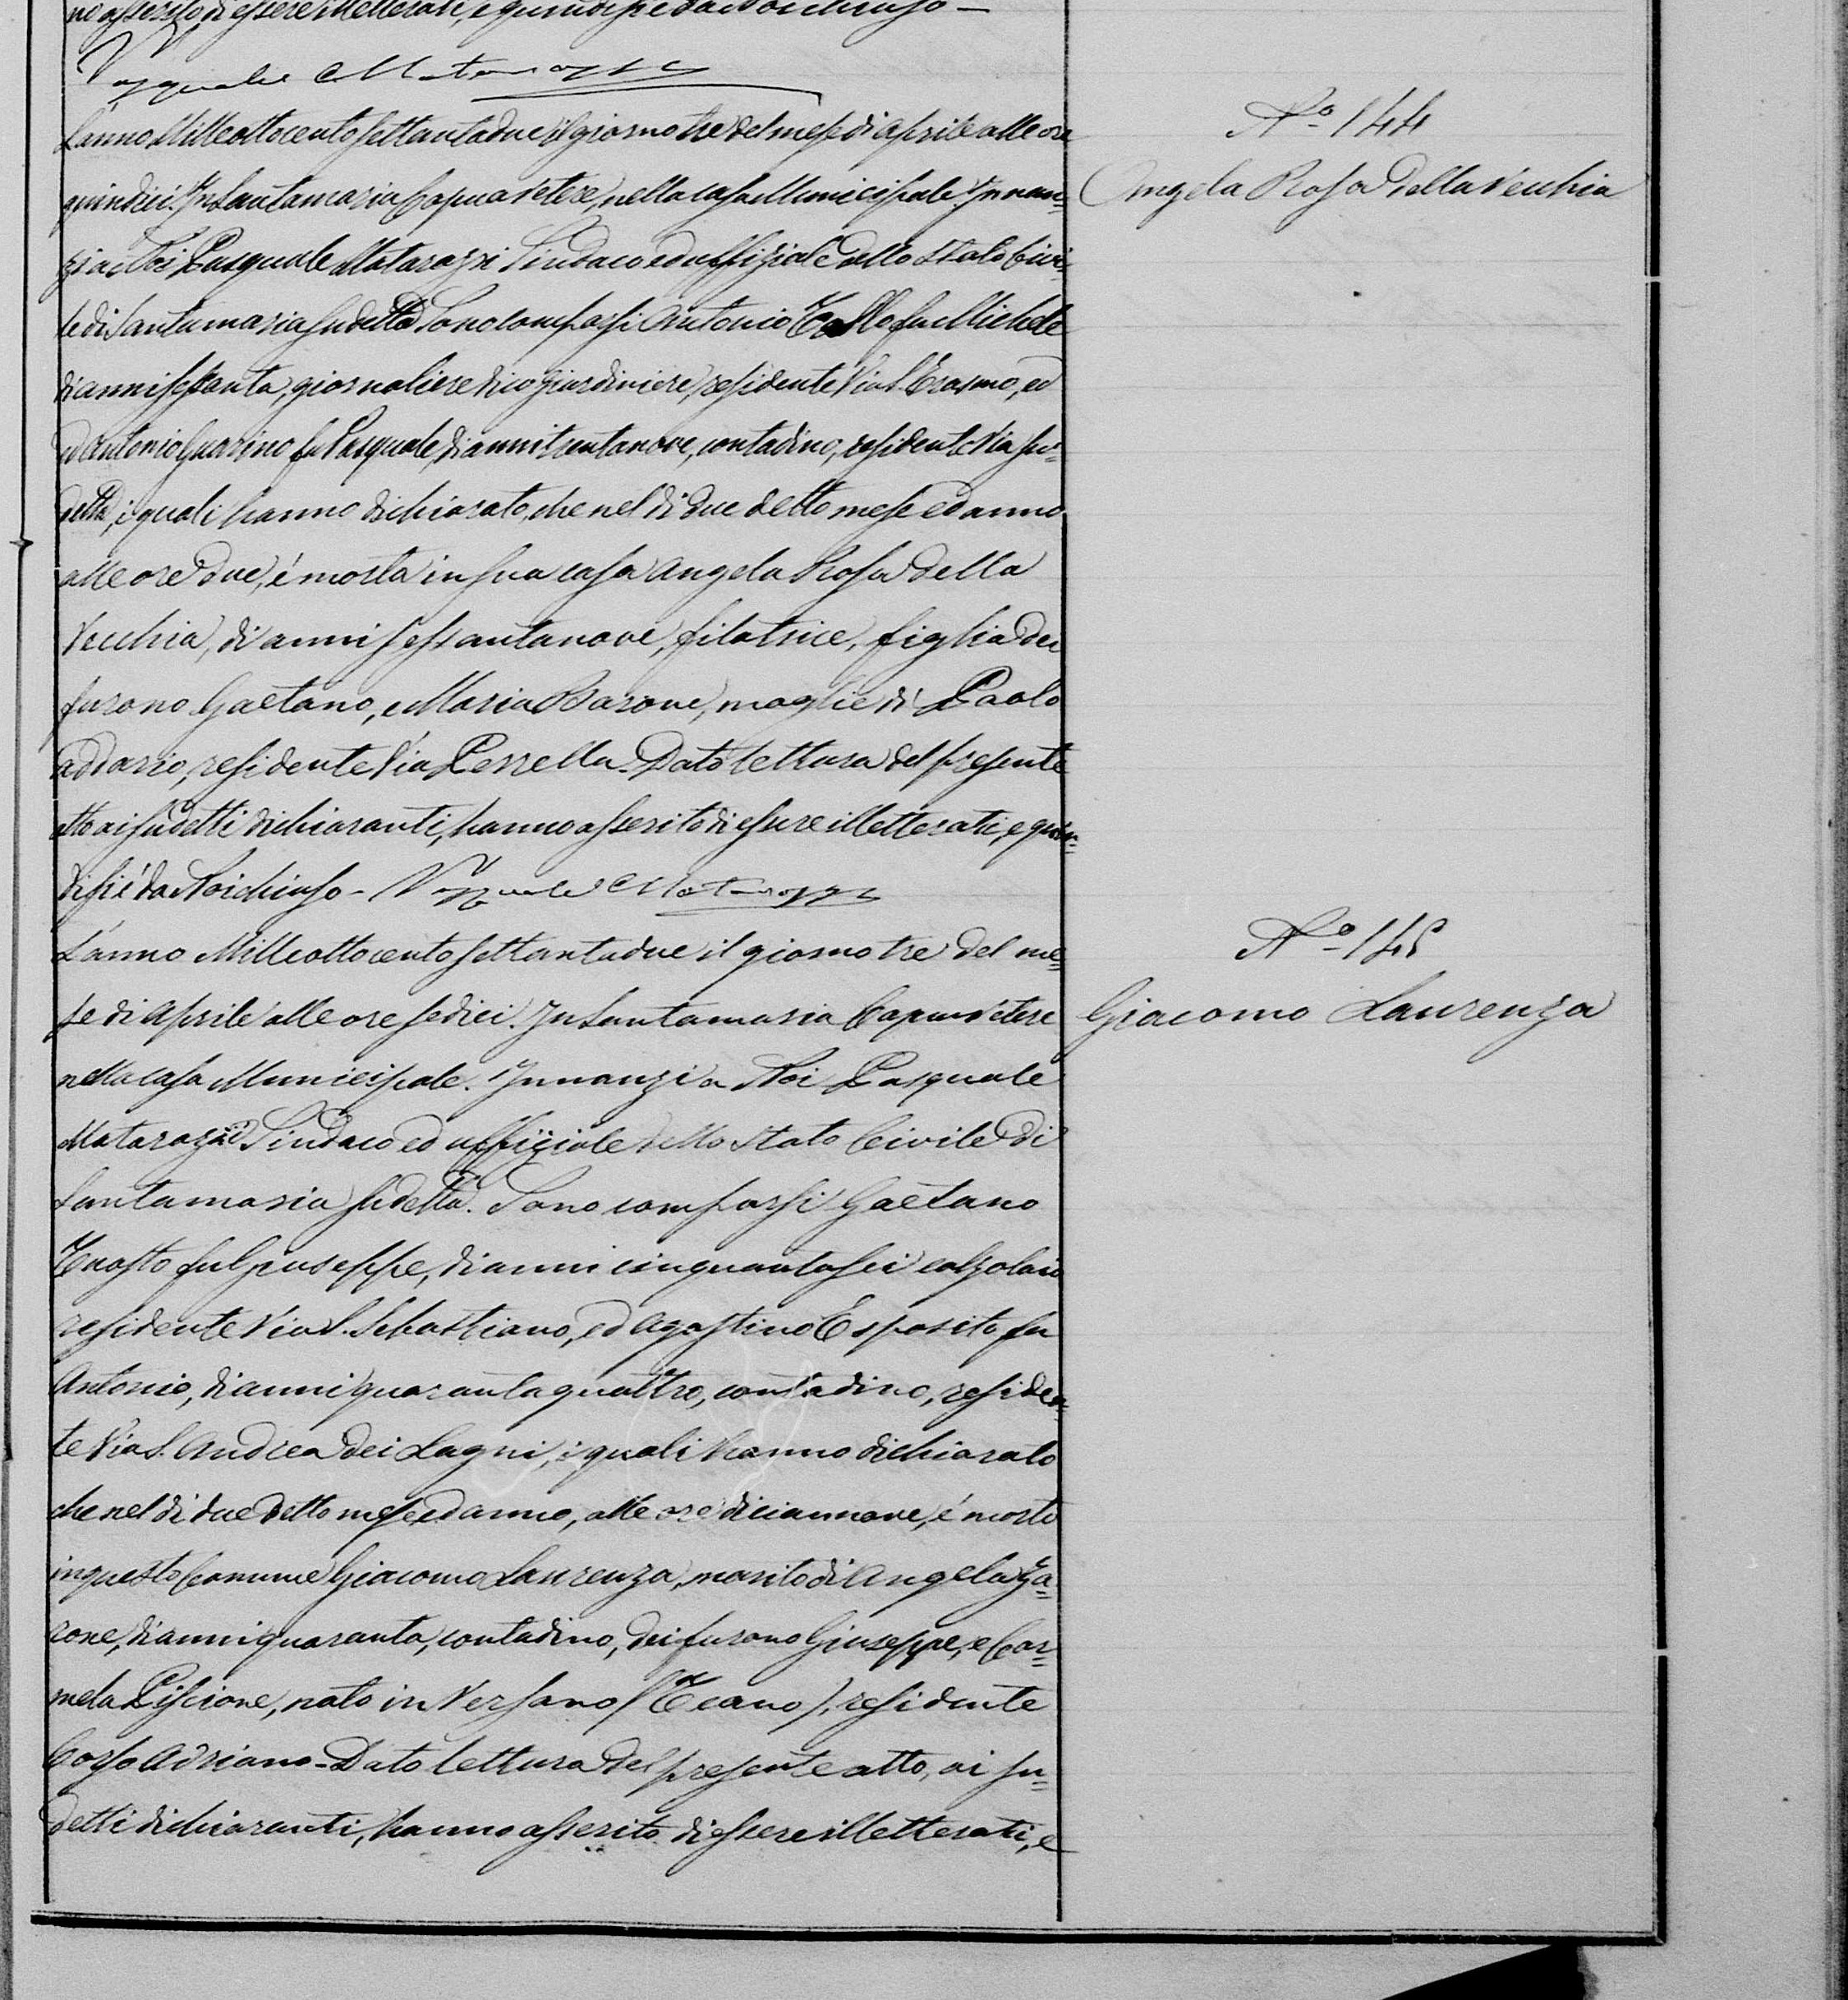 no asserito di essere illetterati, e quindi si è da Noi chiuso —
Pasquale Matarazzi
L'anno Milleottocento settantadue il giorno tre del mese di Aprile alle ore
quindici. In Santamaria Capua Vetere, nella casa Municipale. Innan=
zi a Noi Pasquale Matarazzi Sindaco ed uffiziale dello Stato Civi=
le di Santamaria sudetta Sono comparsi Antonio fu Michele
di anni sessanta, giornaliere dico giardiniere, residente Via S. Erasmo, ed
ed Antonio Guarino fu Pasquale, di anni trentanove, contadino, residente Via su=
detta, i quali hanno dichiarato, che nel dì due detto mese ed anno
alle ore due, é morta in sua casa Angela Rosa Della
Vecchia, di anni sessantanove, filatrice, figlia dei
furono Gaetano, e Maria Barone, moglie di Paolo
Addario, residente Via Perrella. Dato lettura del presente
atto ai sudetti dichiaranti, hanno asserito di essere illetterati, e quin=
di si é da Noi chiuso - Pasquale Matarazzi
L'anno Milleottocento settantadue il giorno tre del me=
se di Aprile alle ore sedici. In Santamaria Capua Vetere
nella casa Municipale. Innanzi a Noi Pasquale
Matarazzi Sindaco ed uffiziale dello Stato Civile di
Santamaria sudetta. Sono comparsi Gaetano
fu Giuseppe, di anni cinquantasei calzolaio
residente Via S. Sebastiano, ed Agostino Esposito fu
Antonio, di anni quarantaquattro, contadino, residen=
te Via S. Andrea dei Lagni, i quali hanno dichiarato
che nel dì due detto mese ed anno, alle ore diciannove, é morto
in questo Comune Giacomo Laurenza, marito di Angela Za=
rone, di anni quaranta, contadino, dei furono Giuseppe, e Car=
mela Piscione, nato in Versano (Teano), residente
Corso Adriano - Dato lettura del presente atto, ai su=
detti dichiaranti, hanno asserito di essere illetterati, e
N.o 144
Angela Rosa Della Vecchia
N.o 145
Giacomo Laurenza